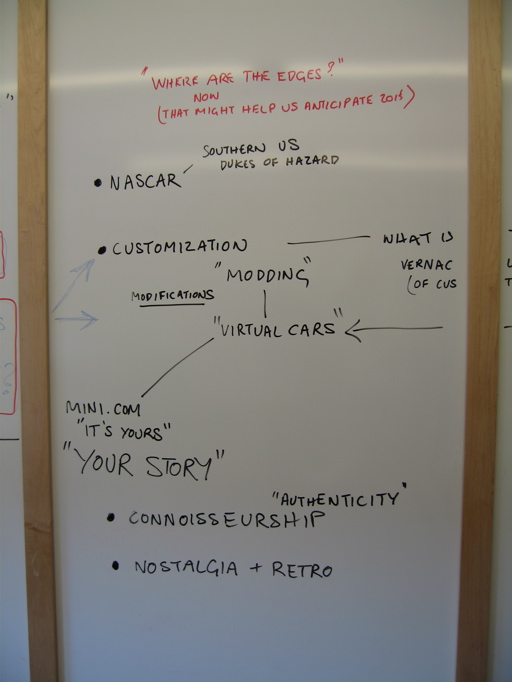 "WHERE ARE THE EDGES?"
NOW
(THAT MIGHT HELP US ANTICIPATE 2015)
SOUTHERN US
DUKES OF HAZARD
• NASCAR
• CUSTOMIZATION
WHAT IS
"MODDING"
VERNAC
MODIFICATIONS
(OF CUS
"VIRTUAL CARS"
MINI.COM
"IT'S YOURS"
"YOUR STORY"
"AUTHENTICITY"
• CONNOISSEURSHIP
• NOSTALGIA + RETRO